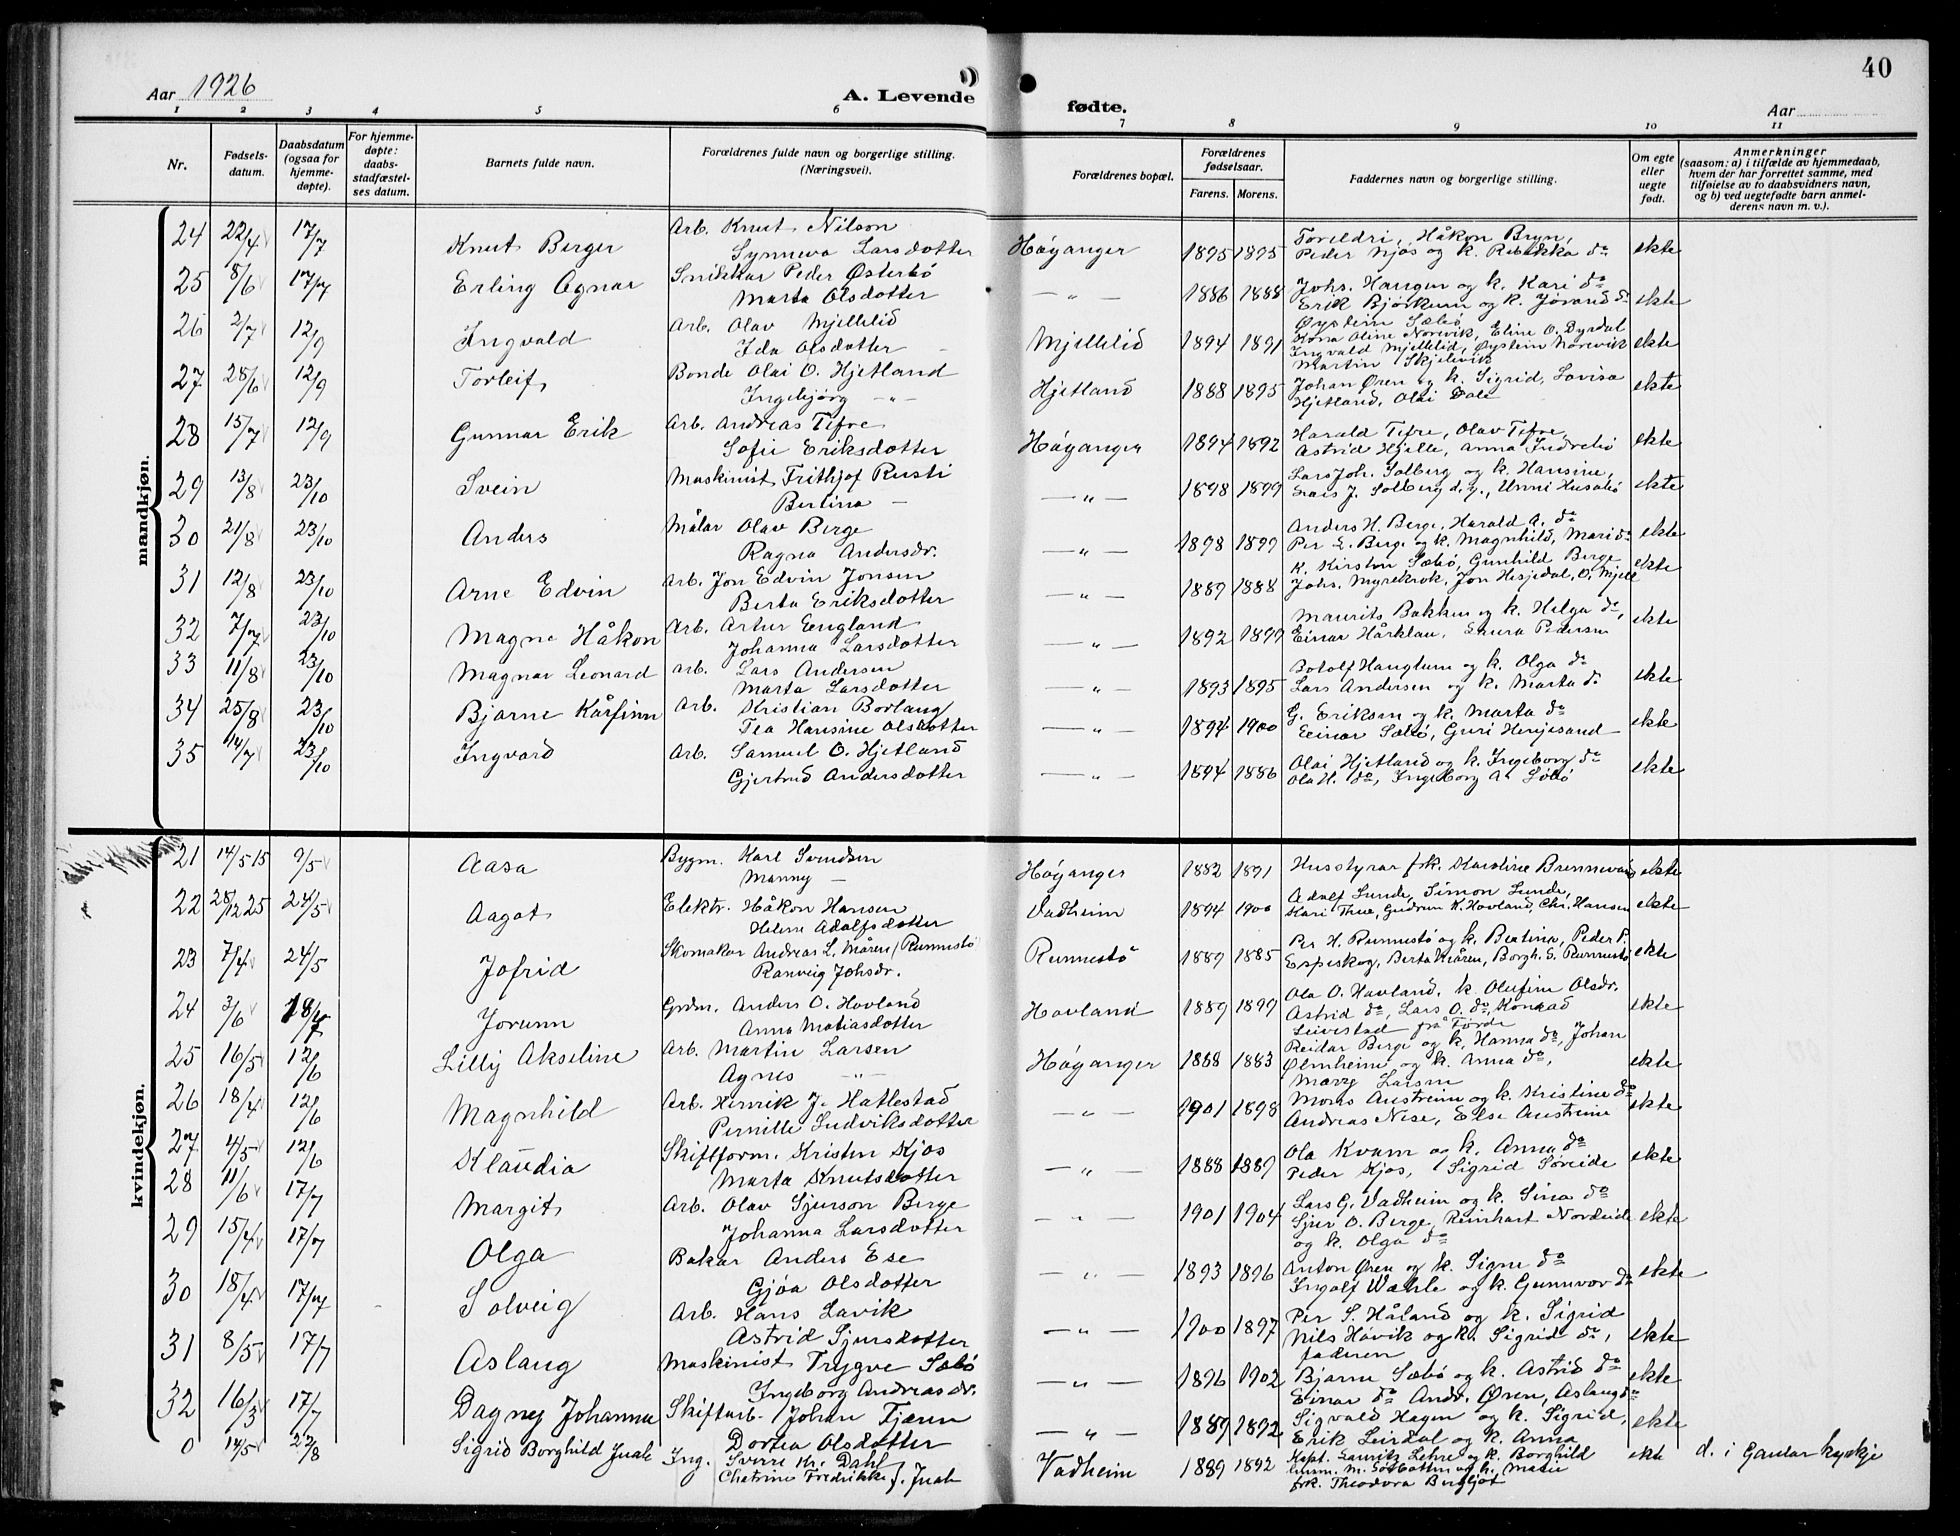 40
Aar 1926
A. Levende fødte.
Aar
1 2 3 4 5 6 7 8 9 10 11
Nr.
Fødsels-datum.
Daabsdatum (ogsaa for hjemme-døpte).
For hjemme-døpte: daabs-stadfæstel-ses datum.
Barnets fulde navn.
Forældrenes fulde navn og borgerlige stilling. (Næringsvei).
Forældrenes bopæl.
Forældrenes fødselsaar.
Farens. Morens.
Faddernes navn og borgerlige stilling.
Om egte eller uegte født.
Anmerkninger (saasom: a) i tilfælde av hjemmedaab, hvem der har forrettet samme, med tilføielse av to daabsvidners navn, og b) ved uegtefødte barn anmel-derens navn m. v.).
mandkjøn.
24 22/4 17/7 Knut Berger Arb. Knut Nilson Høyanger 1895 1895 Foreldri, Håkon Bryn, ekte
Synneva Larsdotter Peder Njøs og k. Rebekka do
25 8/6 17/7 Erling Agnar Snikkar Peder Østerbø — " — 1886 1888 Johs. Haugen og k. Kari do ekte
Marta Olsdotter Erik Bjørkum og k. Jørand do
Øystein Sæbø
26 2/7 12/9 Ingvald Arb. Olav Mjellelid Mjellelid 1894 1891 Kona Oline Norevik, Eline O. Dyrdal ekte
Ida Olsdotter Ingvald Mjellelid, Øystein Norevik
Martin Skjelvik
27 28/6 12/9 Torleif Bonde Olai O. Hjetland Hjetland 1888 1895 Johan Øren og k. Sigrid, Lovisa ekte
Ingebjørg — " — Hjetland, Olai Dale
28 15/7 12/9 Gunnar Erik Arb. Andreas Tefre Høyanger 1894 1892 Harald Tefre, Olav Tefre ekte
Sofie Eriksdotter Astrid Hjelle, Anna Indrebø
29 13/8 23/10 Svein Maskinist Frithjof Rusti — " — 1898 1899 Lars Joh. Solberg og k. Hansine, ekte
Bertina — Lars J. Solberg d.y., Unni Husabø
30 21/8 23/10 Anders Målar Olav Berge — " — 1898 1899 Anders H. Berge, Harald A. do ekte
Ragna Andersdr. Per L. Berge og k. Magnhild, Mari do
31 12/8 23/10 Arne Edvin Arb. Jon Edvin Jonsen — " — 1889 1888 K. Kirsten Sæbø, Gunhild Berge ekte
Berta Eriksdotter Johs. Myrekrok, Jon Hesjedal, O. Mjell
32 7/7 23/10 Magne Håkon Arb. Artur England — " — 1892 1899 Maurits Bakken og k. Helga do, ekte
Johanna Larsdotter Einar Hårklau, Laura Pedersen
33 11/8 23/10 Magnar Leonard Arb. Lars Andersen — " — 1893 1895 Botolf Haugum og k. Olga do ekte
Marta Larsdotter Lars Andersen og k. Marta do
34 25/8 23/10 Bjarne Kårfinn Arb. Kristian Borlaug — " — 1894 1900 G. Eriksen og k. Marta do ekte
Tea Hansine Olsdotter Einar Sæbø, Guri Henjesand
35 14/7 23/10 Ingvard Arb. Samuel O. Hjetland — " — 1894 1886 Olai Hjetland og k. Ingeborg do ekte
Gjertrud Andersdotter Ola H. do, Ingeborg A. Søbø
kvindekjøn.
21 14/5 15 9/5 Aasa Bygm. Karl Svendsen Høyanger 1882 1891 Husstyrar frk. Karoline Brennevann ekte
Manny —
22 28/12 25 24/5 Aagot Elektr. Håkon Hansen Vadheim 1894 1900 Adolf Lunde, Simon Lunde, ekte
Helene Adolfsdotter Kari Thue, Gudrun K. Hovland, Chr. Hansen
23 7/4 24/5 Jofrid Skomakar Andreas L. Måren (Runnestø) Runnestø 1889 1885 Per H. Runnestø og k. Bertina, Peder P. ekte
Ranveig Johsdr. Espeskog, Berta Måren, Borgh. S. Runnestø
24 3/6 18/7 Jorunn Grdm. Anders O. Hovland Hovland 1889 1899 Ola O. Hovland, k. Olufine Olsdr. ekte
Anna Matiasdotter Astrid do, Lars O. do, Konrad
Leivestad frå Førde
25 16/5 12/6 Lilly Akseline Arb. Martin Larsen Høyanger 1888 1883 Reidar Berge og k. Hanna do, Johan ekte
Agnes — " — Ølmheim og k. Anna do,
Marry Larsen
26 18/4 12/6 Magnhild Arb. Henrik J. Hatlestad — " — 1901 1898 Mons Austreim og k. Kristine do ekte
Pernille Ludviksdotter Andreas Nese, Else Austreim
27 4/5 12/6 Klaudia Skiftform. Kristen Kjos — " — 1888 1889 Ola Kvam og k. Anna do ekte
Marta Knutsdotter Peder Kjos, Sigrid Søreide
28 11/6 17/7 Margit Arb. Olav Sjurson Berge — " — 1901 1904 Lars G. Vadheim og k. Sina do ekte
Johanna Larsdotter Sjur O. Berge, Reinhart Nordeide
og k. Olga do
29 15/4 17/7 Olga Bakar Anders Ese — " — 1893 1896 Anton Øren og k. Signe do ekte
Gjøa Olsdotter Ingolf Wahle og k. Gunnvor do
30 18/4 17/7 Solveig Arb. Hans Lavik — " — 1900 1897 Per S. Håland og k. Sigrid ekte
Astrid Sjursdotter Nils Håvik og k. Sigrid do,
faderen
31 8/5 17/7 Aslaug Maskinist Trygve Sæbø — " — 1896 1902 Bjarne Sæbø og k. Astrid do ekte
Ingeborg Andreasdr. Einar do Andr. Øren, Aslaug do
32 16/3 17/7 Dagney Johanna Skiftarb. Johan Tjæren — " — 1889 1892 Sigvald Hagen og k. Sigrid, ekte
Dortea Olsdotter Erik Leirdal og k. Anna
0 14/5 22/8 Sigrid Borghild Juah Ing. Sverre Kr. Dahl Vadheim 1889 1892 Kapt. Lauritz Lehre og k. Borghild ekte d. i Gaular kyrkje
Chatrine Fredrikke f. Juah
frk. Theodora Bergljot